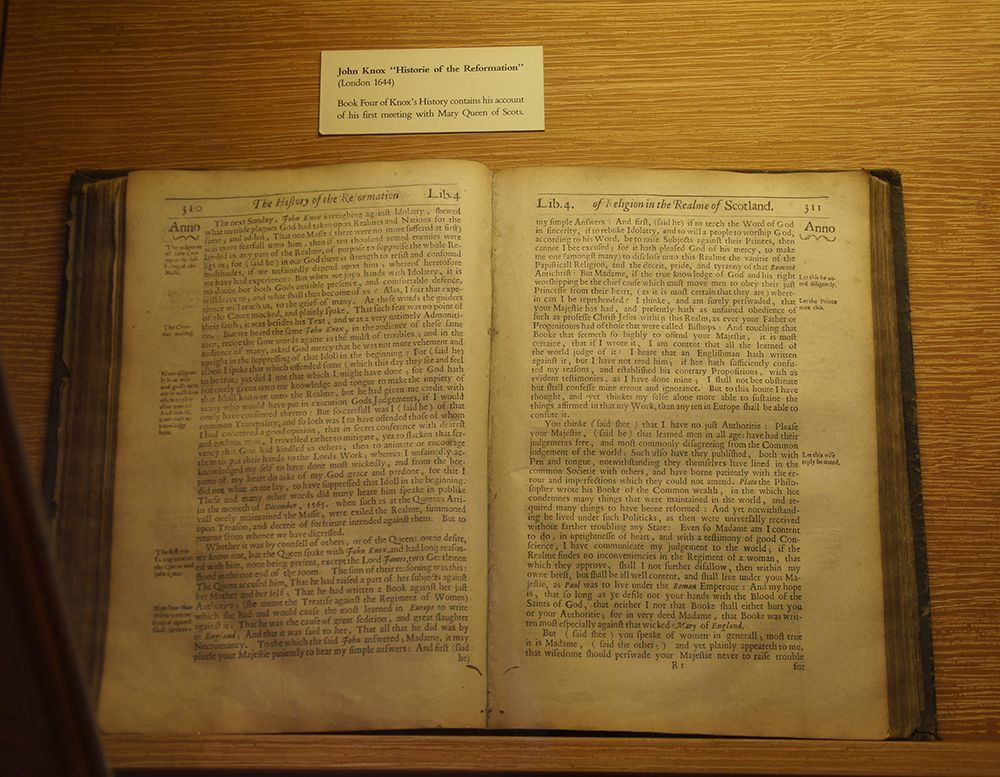 John Knox "Historie of the Reformation"
(London 1644)
Book Four of Knox's History contains his account
of his first meeting with Mary Queen of Scots.
310 The History of the Reformation Lib.4
Anno
The next Sunday, John Knox inveighing against Idolatry, shewed
what terrible plagues God had taken upon Realmes and Nations for the
same; and added, That one Masse (there were no more suffered at first)
was more fearfull unto him, then if ten thousand armed enemies were
landed in any part of the Realme, of purpose to suppresse the whole Re-
ligion; for (said he) in our God there is strength to resist and confound
multitudes, if we unfainedly depend upon him; whereof heretofore
we have had experience: But when we joyn hands with Idolatry, it is
no doubt but both Gods amiable presence, and comfortable defence,
will leave us, and what shall then become of us? Alas, I fear that expe-
rience will teach us, to the grief of many. At these words the guiders
of the Court mocked, and plainly spake, That such fear was no point of
their faith; it was besides his Text, and was a very untimely Admoniti-
on. But we heard the same John Knox, in the audience of these same
men, recite the same words againe in the midst of troubles; and in the
audience of many, asked God mercy that he was not more vehement and
upright in the suppressing of that Idoll in the beginning: For (said he)
albeit I spake that which offended some (which this day they see and feel
to be true) yet did I not that which I might have done; for God hath
not onely given unto me knowledge and tongue to make the impiety of
that Idoll knowne unto the Realme, but he had given me credit with
many who would have put in execution Gods Judgements, if I would
onely have consented thereto: But so carefull was I (said he) of that
common Tranquility, and so loth was I to have offended those of whom
I had conceived a good opinion, that in secret conference with dearest
and zealous men, I travelled rather to mitigate, yea to slacken that fer-
vency that God had kindled in others, then to animate or encourage
them to put their hands to the Lords Work; wherein I unfainedly ac-
knowledged my self to have done most wickedly, and from the bot-
tome of my heart do aske of my God grace and pardone, for that I
did not what in me lay, to have suppressed that Idoll in the beginning.
These and many other words did many heare him speake in publike
in the moneth of December, 1565. when such as at the Queenes Arri-
vall onely maintained the Masse, were exiled the Realme, summoned
upon Treason, and decreet of forfeiture intended against them. But to
returne from whence we have digressed.
Whether it was by counsell of others, or of the Queens owne desire,
we know not, but the Queen spake with John Knox, and had long reason-
ed with him, none being present, except the Lord James, two Gentlemen
stood in the one end of the room. The sum of their reasoning was this:
The Queen accused him, That he had raised a part of her subjects against
her Mother and her self; That he had written a Book against her just
Authority, (she meant the Treatise against the Regiment of Women)
which she had and would cause the most learned in Europe to write
against it; That he was the cause of great sedition, and great slaughter
in England; And that it was said to her, That all that he did was by
Necromancy. To the which the said John answered, Madame, it may
please your Majestie patiently to hear my simple answers: And first (said
he)
Lib.4. of Religion in the Realme of Scotland. 311
Anno
my simple Answers: And first, (said he) if to teach the Word of God
in sincerity, if to rebuke Idolatry, and to will a people to worship God,
according to his Word, be to raise Subjects against their Princes, then
cannot I be excused; for it hath pleased God of his mercy, to make
me one (amongst many) to disclose unto this Realme the vanitie of the
Papisticall Religion, and the deceit, pride, and tyranny of that Romane
Antichrist: But Madame, if the true knowledge of God and his right
worshipping be the chief cause which must move men to obey their just
Princesse from their heart, (as it is most certain that they are) where-
in can I be reprehended? I thinke, and am surely perswaded, that
your Majestie has had, and presently hath as unfained obedience of
such as professe Christ Jesus within this Realm, as ever your Father or
Progenitours had of those that were called Bishops: And touching that
Booke that seemeth so highly to offend your Majestie, it is most
certaine, that if I wrote it, I am content that all the learned of
the world judge of it: I heare that an Englishman hath written
against it, but I have not read him; if hee hath sufficiently confu-
ted my reasons, and established his contrary Propositions, with as
evident testimonies, as I have done mine; I shall not bee obstinate
but shall confesse mine error and ignorance. But to this houre I have
thought, and yet thinkes my selfe alone more able to sustaine the
things affirmed in that my Work, than any ten in Europe shall be able to
confute it.
You thinke (said shee) that I have no just Authoritie: Please
your Majestie, (said he) that learned men in all ages have had their
judgements free, and most commonly disagreeing from the Common
judgement of the world; Such also have they published, both with
Pen and tongue, notwithstanding they themselves have lived in the
common Societie with others, and have borne patiently with the er-
rour and imperfections which they could not amend. Plato the Philo-
sopher wrote his Booke of the Common wealth, in the which hee
condemnes many things that were maintained in the world, and re-
quired many things to have beene reformed: And yet notwithstand-
ing he lived under such Politicks, as then were universally received
without farther troubling any State: Even so Madame am I content
to do, in uprightnesse of heart, and with a testimony of good Con-
science, I have communicate my judgement to the world; if the
Realme findes no inconveniencies in the Regiment of a woman, that
which they approve, shall I not further disallow, then within my
owne brest, but shall be all well content, and shall live under your Ma-
jestie, as Paul was to live under the Roman Emperour: And my hope
is, that so long as ye defile not your hands with the Blood of the
Saints of God, that neither I nor that Booke shall either hurt you
or your Authoritie; for in very deed Madame, that Booke was writ-
ten most especially against that wicked Mary of England.
But (said shee) you speake of women in generall; most true
it is Madame, (said the other;) and yet plainly appeareth to me,
that wisedome should perswade your Majestie never to raise trouble
Rr for
Let the Prince
note this.
Let this wise
reply be noted.